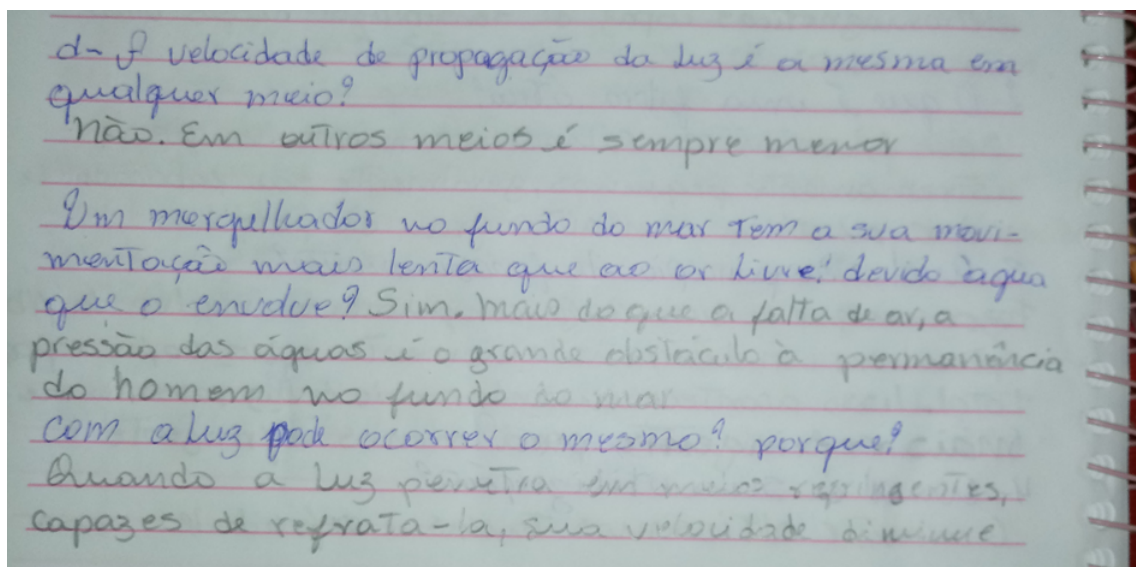 d- A velocidade de propagação da luz é a mesma em
qualquer meio?
não. Em outros meios é sempre menor
Um mergulhador no fundo do mar tem a sua movi-
mentação mais lenta que ao ar livre, devido àgua
que o envolve? Sim. mais do que a falta de ar, a
pressão das águas é o grande obstáculo à permanência
do homem no fundo do mar
com a luz pode ocorrer o mesmo? porque?
Quando a luz penetra em meios refringentes,
capazes de refrata-la, sua velocidade diminue